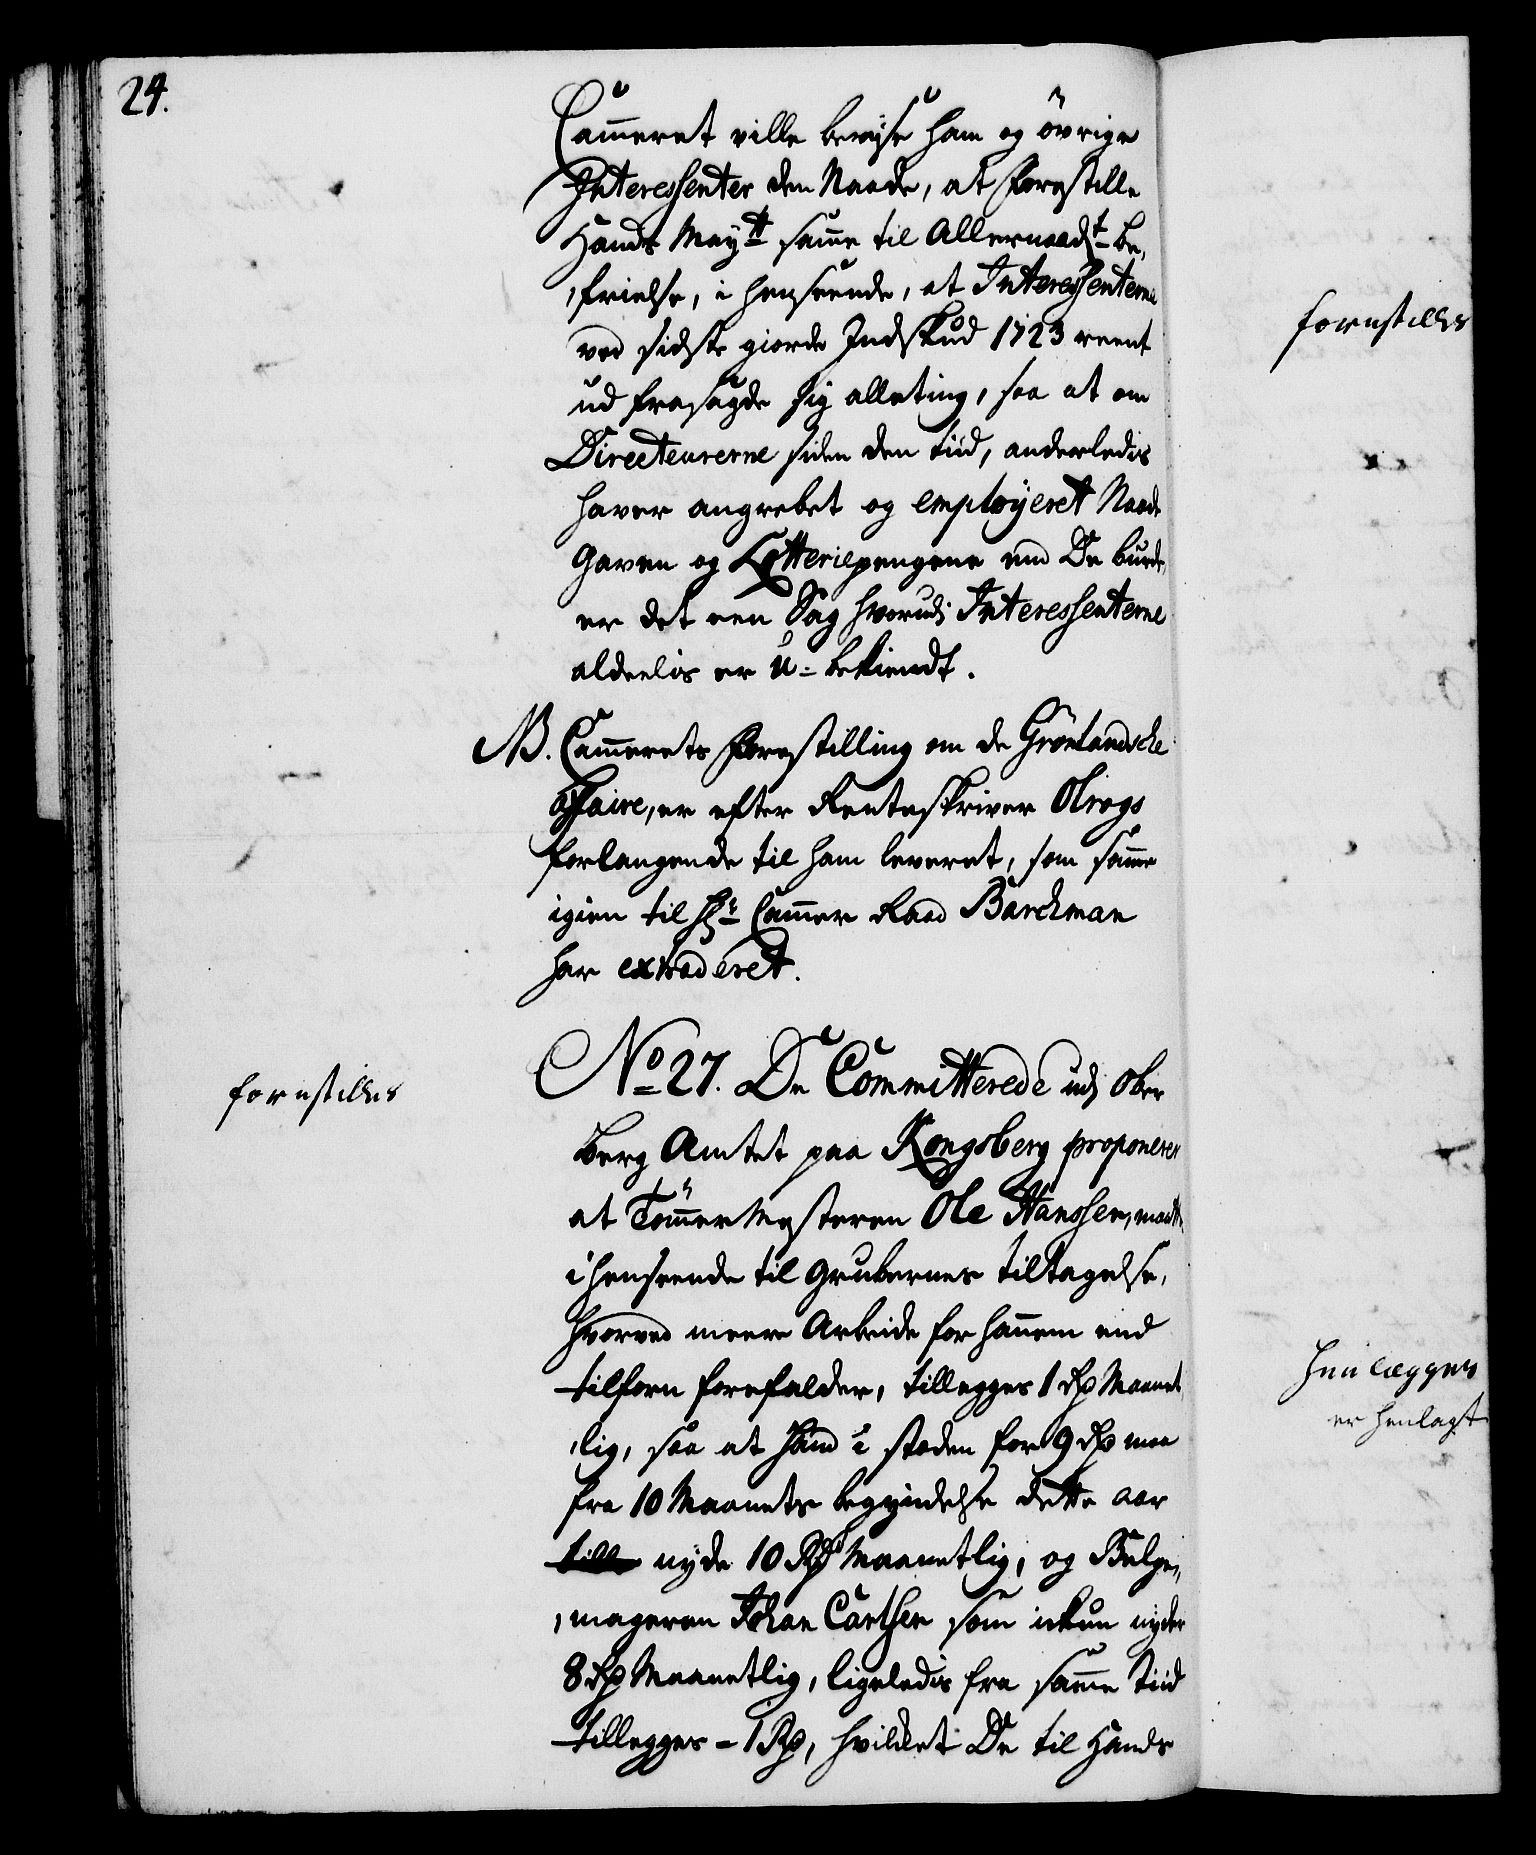 24.
Cammeret ville bevise ham og övrige
Interessenter den Naade, at forestille
Hands May.tt samme til Allernaadt be,
,frielse, i henseende, at Interessenterne
ved sidste giorde Indskud 1723 reent
ud frasagde sig alleting, saa at om
Directeurerne siden den tiid, anderledis
haver angrebet og employeret Naade
Gaven og Lotteriepengene end De burde,
er det een Sag hvorudi Interessenterne
aldeelis er u-bekiendt.
NB. Cammerets Forestilling om de Grönlandsche
affaire, er efter Renteskriver Olrogs
forlangende til ham leveret, som samme
igien til Hr. Cammer Raad Barchman
har extraderet.
forestilles
No 27. De Committerede udj Ober
Berg Amtet paa Kongsberg proponerer
at Tömmermesteren Ole Hanssen, maatte
i henseende til Grubernes tiltagelse,
hvorved meere Arbeide for hannem end
tilforn forefalder, tillegges 1 Rd Maanet
,lig, saa at hand i steden for 9 Rd maa
fra 10 Maanets begyndelse dette aar
till nyde 10 Rd Maanetlig, og Belge,,
,mageren Johan Carlsen som ickun nyder
8 Rd Maanetlig, ligeledis fra samme tiid
tillegges - 1 Rd, hvilcket De til Hands
forestilles
henlægges
er henlagt